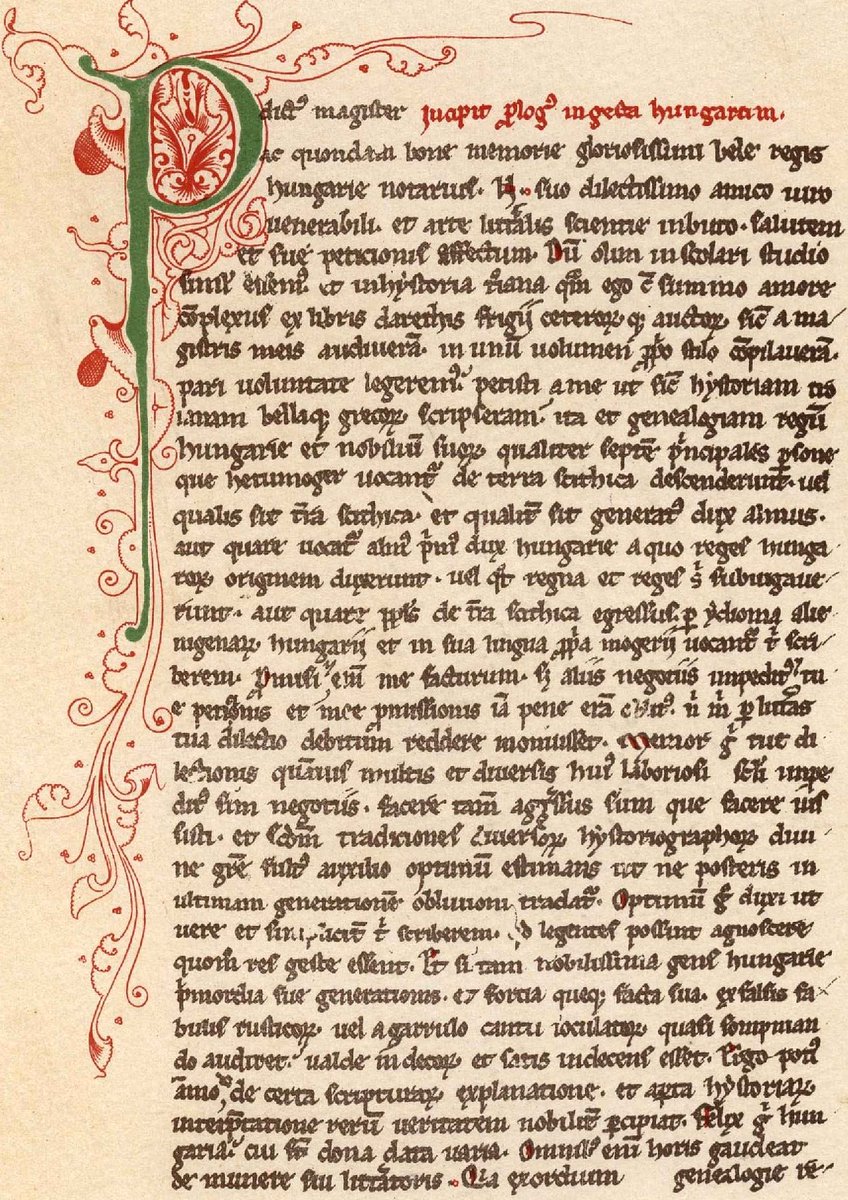 P dictꝰ magister Incipit ꝓlogꝰ in gesta hungarum.
ac quondam bone memorie gloriosissimi bele regis
hungarie notarius. N. suo dilectissimo amico uiro
uenerabili. et arte litt̾alis scientie inbuto. salutem
et sue peticionis affectum. Dū olim in scolari studio
simul essemꝰ et in hystoria t̾iana qm̄ ego cū summo amore
cōplexus ex libris darethis frigii ceterorꝝ qꝫ auctorꝝ sic̄ a ma
gistris meis audiuerā. in unū uolumen ꝓp̄o stilo cōpilauerā.
pari uoluntate legeremꝰ. petisti a me ut sic̄ hystoriam tro
ianam bellaqꝫ grecorꝝ scripseram. ita et genealogiam regū
hungarie et nobiliū suorꝝ. qualiter septē p̄ncipales ꝑsone
que hetumoger uocant᷑ de terra scithica descenderunt. uel
qualis sit t̄ra scithica. et qualit̄ sit generatꝰ dux almus.
aut quare uocat᷑ almꝰ p̄mꝰ dux hungarie a quo reges hunga
rorꝝ originem duxerunt. uel qt̄ regna et reges s̄ subiugaue
runt. aut quare pp̄ls de t̄ra scithica egressus ꝑ ydioma alie
nigenarꝝ hungarii et in sua lingua ꝓp̄a mogerii uocant᷑ t̄ scri
berem. Promisi etēm me facturum. sꝫ aliis negotiis impeditꝰ tu
e petic̄onis et mee ꝓmissionis iā pene erā oblitꝰ. n̄ m̄ ꝑ litt̾as
tua dilectio debitum reddere monuisset. Memor ḡ tue di
lectionis quamuis multis et diuersis huiꝰ laboriosi sc̄li impe
ditꝰ sim negotiis. facere tam̄ aggressus sum que facere ius
sisti. et scd̄m tradiciones diuersorꝝ hystoriographorꝝ diui
ne gr̄e fultꝰ auxilio optimū estimans ut ne posteris in
ultimam generationē obliuioni tradat᷑. Optimū ḡ duxi ut
uere et simplicit̄ t̄ scriberem. legentes possint agnoscere
quom̄ res geste essent. Et si tam nobilissima gens hungarie
p̄mordia sue generationis. et fortia queqꝫ facta sua. ex falsis fa
bulis rusticorꝝ. uel a garrulo cantu ioculatorꝝ quasi sompnian
do audiret. ualde indecorꝝ et satis indecens esset. Ergo potiꝰ
āmo de certa scripturarꝝ explanatione. et aꝑta hystoriarꝝ
interp̄tatione rerū ueritatem nobilit̄ ꝑcipiat. Felix ḡ hun
garia. cui st̄ dona data uaria. Omnibꝰ em̄ horis gaudeat
de munere sui litt̾atoris. Quia exordium genealogie re-